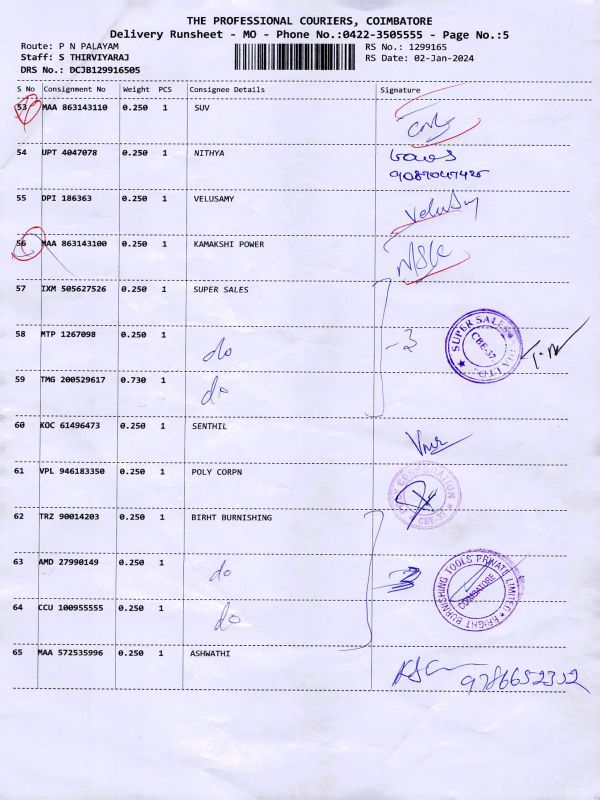 THE PROFESSIONAL COURIERS, COIMBATORE
Delivery Runsheet - MO - Phone No.:0422-3505555 - Page No.:5
Route: P N PALAYAM RS No.: 1299165
Staff: S THIRVIYARAJ RS Date: 02-Jan-2024
DRS No.: DCJB129916505
S No Consignment No Weight PCS Consignee Details Signature
53 MAA 863143110 0.250 1 SUV
54 UPT 4047078 0.250 1 NITHYA
55 DPI 186363 0.250 1 VELUSAMY Velusamy
56 MAA 863143100 0.250 1 KAMAKSHI POWER
57 IXM 505627526 0.250 1 SUPER SALES
58 MTP 1267098 0.250 1 do -3 SUPER SALES CBE-37
59 TMG 200529617 0.730 1 do
60 KOC 61496473 0.250 1 SENTHIL
61 VPL 946183350 0.250 1 POLY CORPN POLY CORPORATION CBE-37
62 TRZ 90014203 0.250 1 BIRHT BURNISHING
63 AMD 27990149 0.250 1 do 3 BRIGHT BURNISHING TOOLS PRIVATE LIMITED COIMBATORE
64 CCU 100955555 0.250 1 do
65 MAA 572535996 0.250 1 ASHWATHI 9786652352